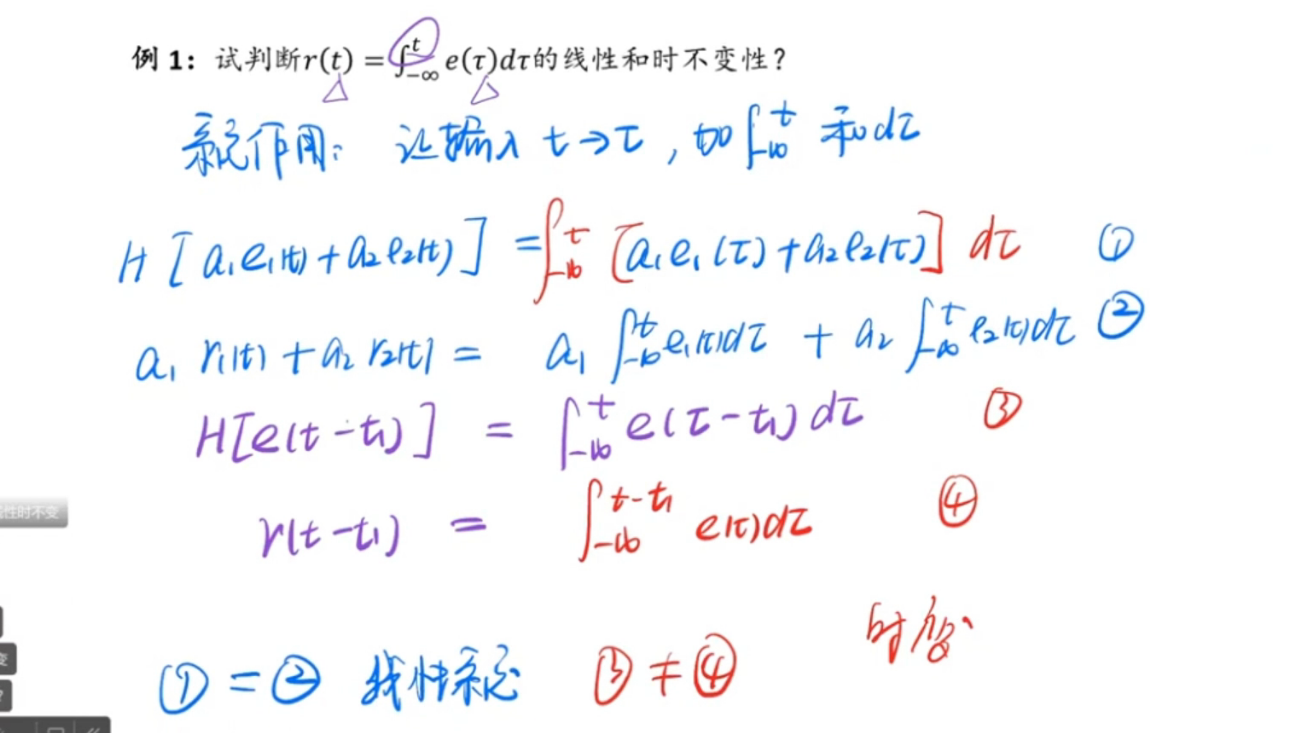 例 1：试判断r(t) = ∫_{-∞}^{t} e(τ)dτ的线性和时不变性？
系统作用： 让输入 t→τ，加 ∫_{-∞}^{t} 和dτ
H [a₁e₁(t)+a₂e₂(t)] = ∫_{-∞}^{t} [a₁e₁(τ)+a₂e₂(τ)] dτ ①
a₁ r₁(t) + a₂ r₂(t) = a₁ ∫_{-∞}^{t} e₁(τ)dτ + a₂ ∫_{-∞}^{t} e₂(τ)dτ ②
H[e(t-t₁)] = ∫_{-∞}^{t} e(τ-t₁)dτ ③
r(t-t₁) = ∫_{-∞}^{t-t₁} e(τ)dτ ④
性时不变
时变
① = ② 线性系统 ③ ≠ ④
变
?